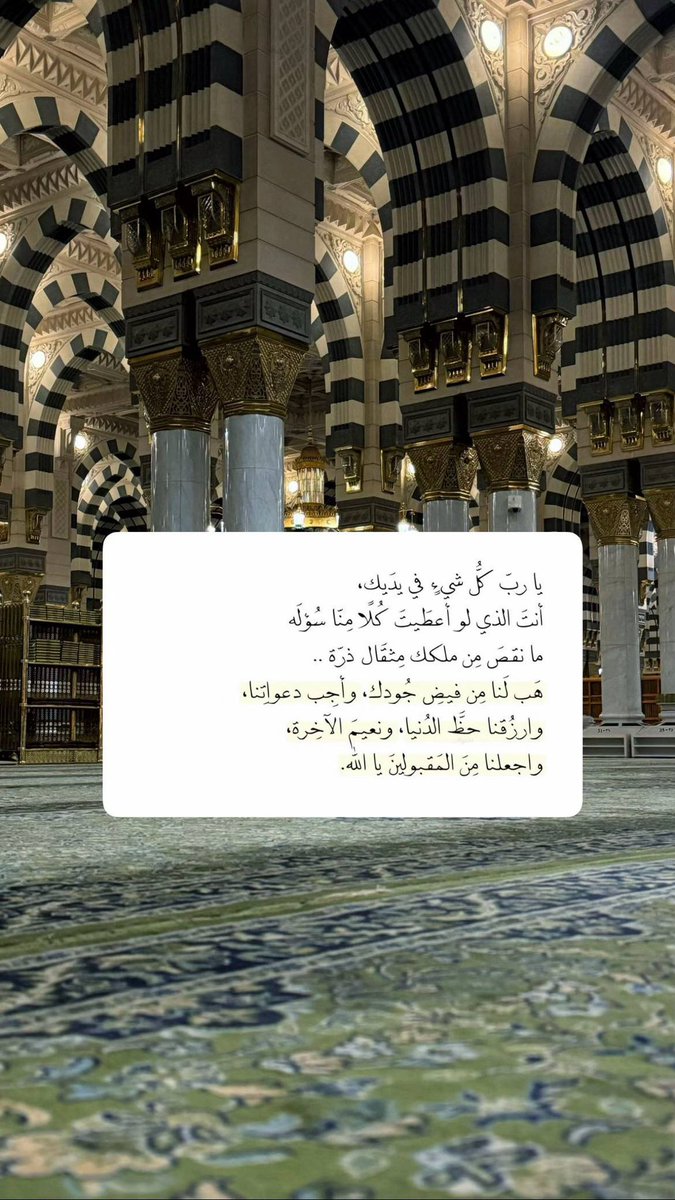 يا ربَ كُلُّ شيءٍ في يدَيك،
أنتَ الذي لو أعطَيتَ كُلًا مِنّا سُؤلَه
ما نقصَ مِن ملكك مِثقَال ذرّة ..
هَب لَنا مِن فيضِ جُودك، وأجِب دعواتِنا،
وارزُقنا حظَّ الدُنيا، ونعيمَ الآخِرة،
واجعلنا مِنَ المَقبولينَ يا الله.